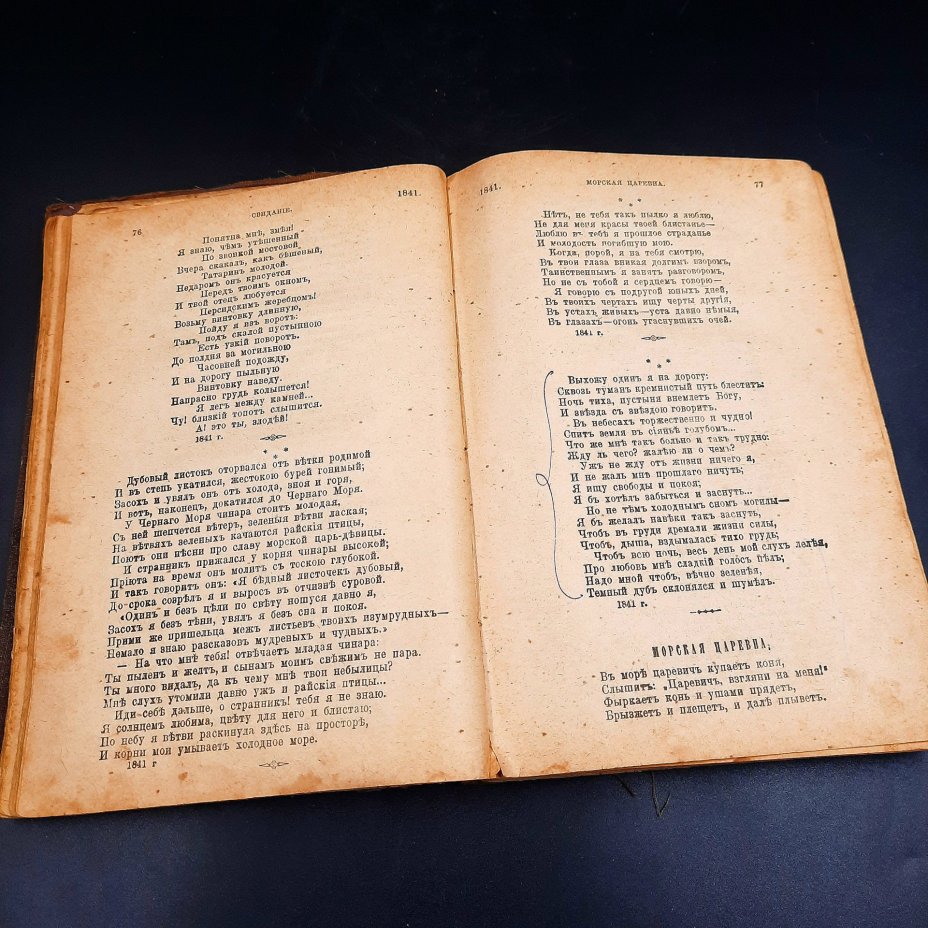 76
СВИДАНІЕ.
1841.
Понятна мнѣ, змѣя!
Я знаю, чѣмъ утѣшенный
По звонкой мостовой
Вчера скакалъ, какъ бѣшеный,
Татаринъ молодой.
Недаромъ онъ красуется
Передъ твоимъ окномъ,
И твой отецъ любуется
Персидскимъ жеребцомъ!
Возьму винтовку длинную,
Пойду я изъ воротъ:
Тамъ, подъ скалой пустынною
Есть узкій поворотъ.
До полдня за могильною
Часовней подожду,
И на дорогу пыльную
Винтовку наведу.
Напрасно грудь колышется!
Я легъ между камней...
Чу! близкій топотъ слышится.
А! это ты, злодѣй!
1841 г.
* * *
Дубовый листокъ оторвался отъ вѣтки родимой
И въ степь укатился, жестокою бурей гонимый;
Засохъ и увялъ онъ отъ холода, зноя и горя,
И вотъ, наконецъ, докатился до Чернаго Моря.
У Чернаго Моря чинара стоитъ молодая,
Съ ней шепчется вѣтеръ, зеленыя вѣтви лаская;
На вѣтвяхъ зеленыхъ качаются райскія птицы,
Поютъ они пѣсни про славу морской царь-дѣвицы.
И странникъ прижался у корня чинары высокой;
Пріюта на время онъ молитъ съ тоскою глубокой.
И такъ говоритъ онъ: «Я бѣдный листочекъ дубовый,
До-срока созрѣлъ я и выросъ въ отчизнѣ суровой.
«Одинъ и безъ цѣли по свѣту ношуся давно я,
Засохъ я безъ тѣни, увялъ я безъ сна и покоя.
Прими же пришельца межъ листьевъ твоихъ изумрудныхъ—
Немало я знаю разсказовъ мудреныхъ и чудныхъ.»
— На что мнѣ тебя! отвѣчаетъ младая чинара:
Ты пыленъ и желтъ, и сынамъ моимъ свѣжимъ не пара.
Ты много видалъ, да къ чему мнѣ твои небылицы?
Мнѣ слухъ утомили давно ужъ и райскія птицы...
Иди себѣ дальше, о странникъ! тебя я не знаю.
Я солнцемъ любима, цвѣту для него и блистаю;
По небу я вѣтви раскинула здѣсь на просторѣ,
И корни мои умываетъ холодное море.
1841 г
1841.
МОРСКАЯ ЦАРЕВНА.
77
* * *
Нѣтъ, не тебя такъ пылко я люблю,
Не для меня красы твоей блистанье—
Люблю въ тебѣ я прошлое страданье
И молодость погибшую мою.
Когда, порой, я на тебя смотрю,
Въ твои глаза вникая долгимъ взоромъ,
Таинственнымъ я занятъ разговоромъ,
Но не съ тобой я сердцемъ говорю—
Я говорю съ подругой юныхъ дней,
Въ твоихъ чертахъ ищу черты другія,
Въ устахъ живыхъ—уста давно нѣмыя,
Въ глазахъ—огонь угаснувшихъ очей.
1841 г.
* * *
Выхожу одинъ я на дорогу:
Сквозь туманъ кремнистый путь блеститъ
Ночь тиха, пустыня внемлетъ Богу,
И звѣзда съ звѣздою говоритъ.
Въ небесахъ торжественно и чудно!
Спитъ земля въ сіяньѣ голубомъ...
Что же мнѣ такъ больно и такъ трудно:
Жду ль чего? жалѣю ли о чемъ?
Ужъ не жду отъ жизни ничего я,
И не жаль мнѣ прошлаго ничуть;
Я ищу свободы и покоя;
Я бъ хотѣлъ забыться и заснуть...
Но не тѣмъ холоднымъ сномъ могилы—
Я бъ желалъ навѣки такъ заснуть,
Чтобъ въ груди дремали жизни силы,
Чтобъ, дыша, вздымалась тихо грудь;
Чтобъ всю ночь, весь день мой слухъ лелѣя,
Про любовь мнѣ сладкій голосъ пѣлъ;
Надо мной чтобъ, вѣчно зеленѣя,
Темный дубъ склонялся и шумѣлъ.
1841 г.
МОРСКАЯ ЦАРЕВНА.
Въ морѣ царевичъ купаетъ коня,
Слышитъ: „Царевичъ, взгляни на меня!"
Фыркаетъ конь и ушами прядетъ,
Брызжетъ и плещетъ, и далѣ плыветъ.